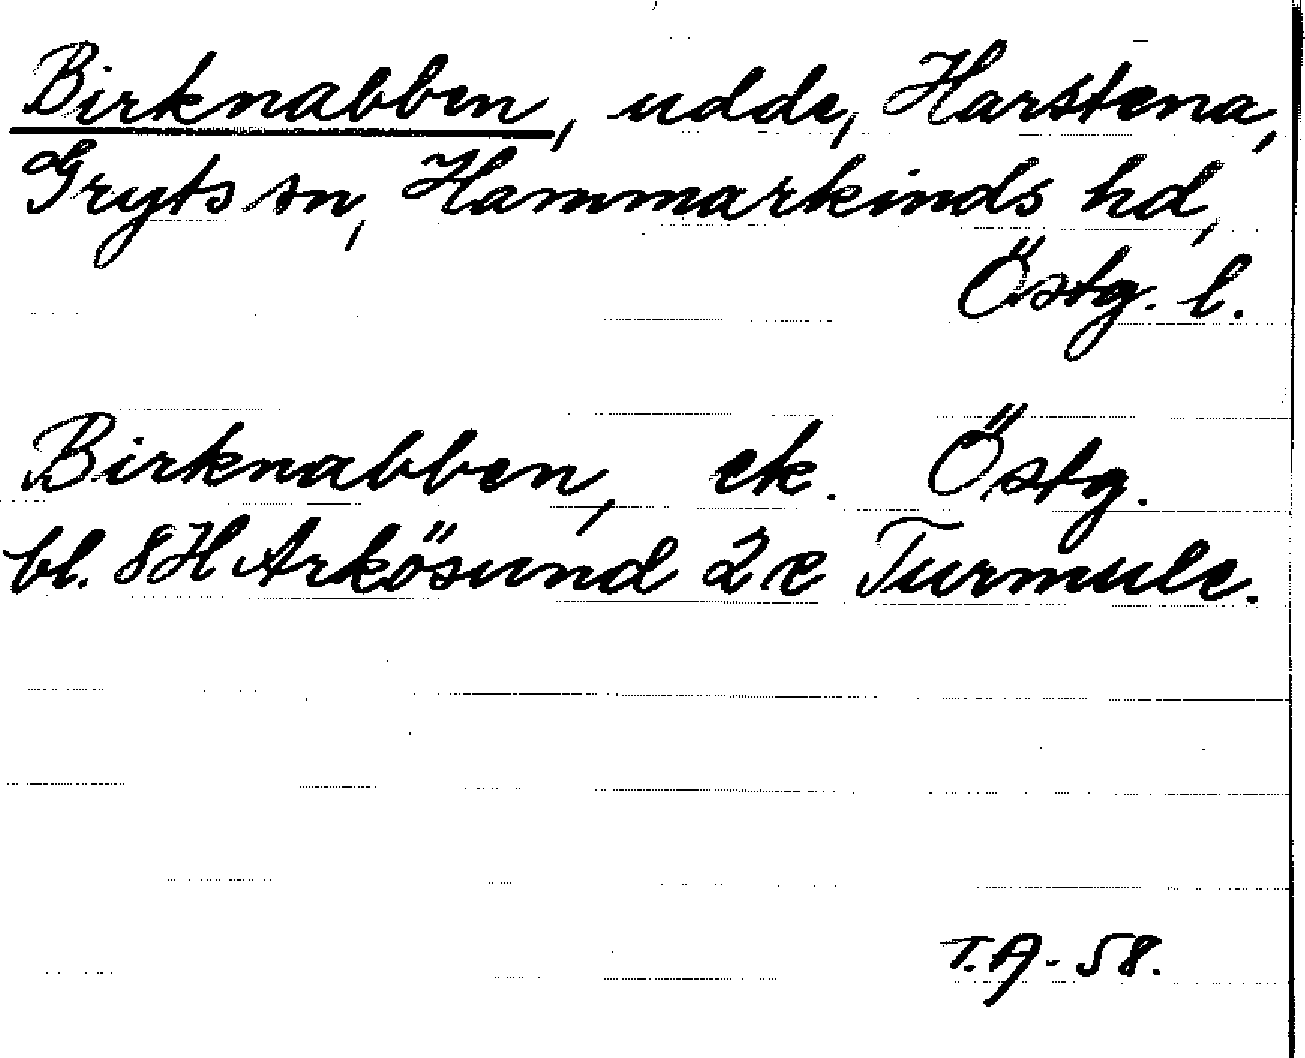 Birknabben, udde, Harstena,
Gryts sn, Hammarkinds hd,
Östg. l.
Birknabben, ek. Östg.
bl. 8H Arkösund 2c Turmule.
T.A-58.